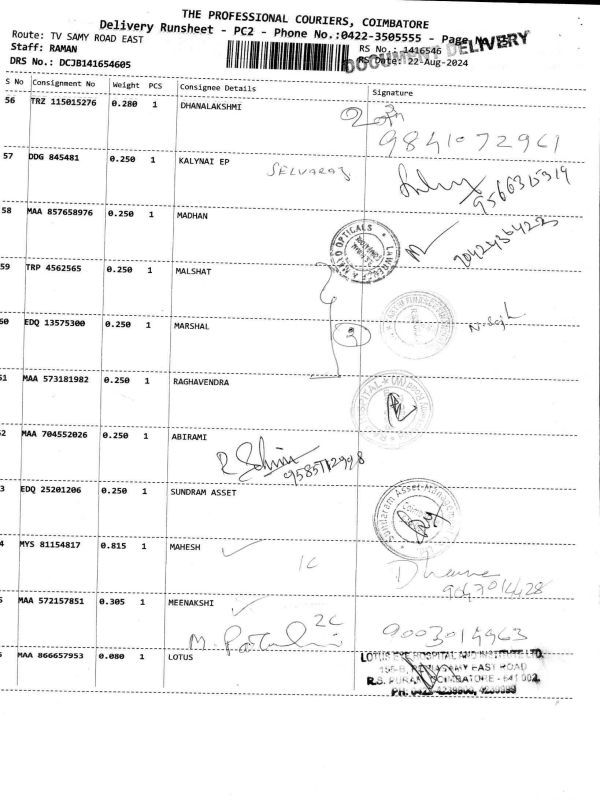 THE PROFESSIONAL COURIERS, COIMBATORE
Delivery Runsheet - PC2 - Phone No.:0422-3505555 - Page No
Route: TV SAMY ROAD EAST
RS No.: 1416546
DOCUMENT DELIVERY
Staff: RAMAN
RS Date: 22-Aug-2024
DRS No.: DCJB141654605
S No Consignment No Weight PCS Consignee Details Signature
56 TRZ 115015276 0.280 1 DHANALAKSHMI
9841072961
57 DDG 845481 0.250 1 KALYNAI EP
SELVARAJ
9566315919
58 MAA 857658976 0.250 1 MADHAN
OPTICALS
59 TRP 4562565 0.250 1 MALSHAT
60 EDQ 13575300 0.250 1 MARSHAL
3
51 MAA 573181982 0.250 1 RAGHAVENDRA
52 MAA 704552026 0.250 1 ABIRAMI
9585712998
3 EDQ 25201206 0.250 1 SUNDRAM ASSET
Sundaram Asset Manag
4 MYS 81154817 0.815 1 MAHESH
1C
9047014428
5 MAA 572157851 0.305 1 MEENAKSHI
2C
9003014963
MAA 866657953 0.080 1 LOTUS
LOTUS EYE HOSPITAL AND INSTITUTE LTD.
EAST ROAD
R.S. PURAM, COIMBATORE - 641 002.
PH. 0422-4239900, 4239999